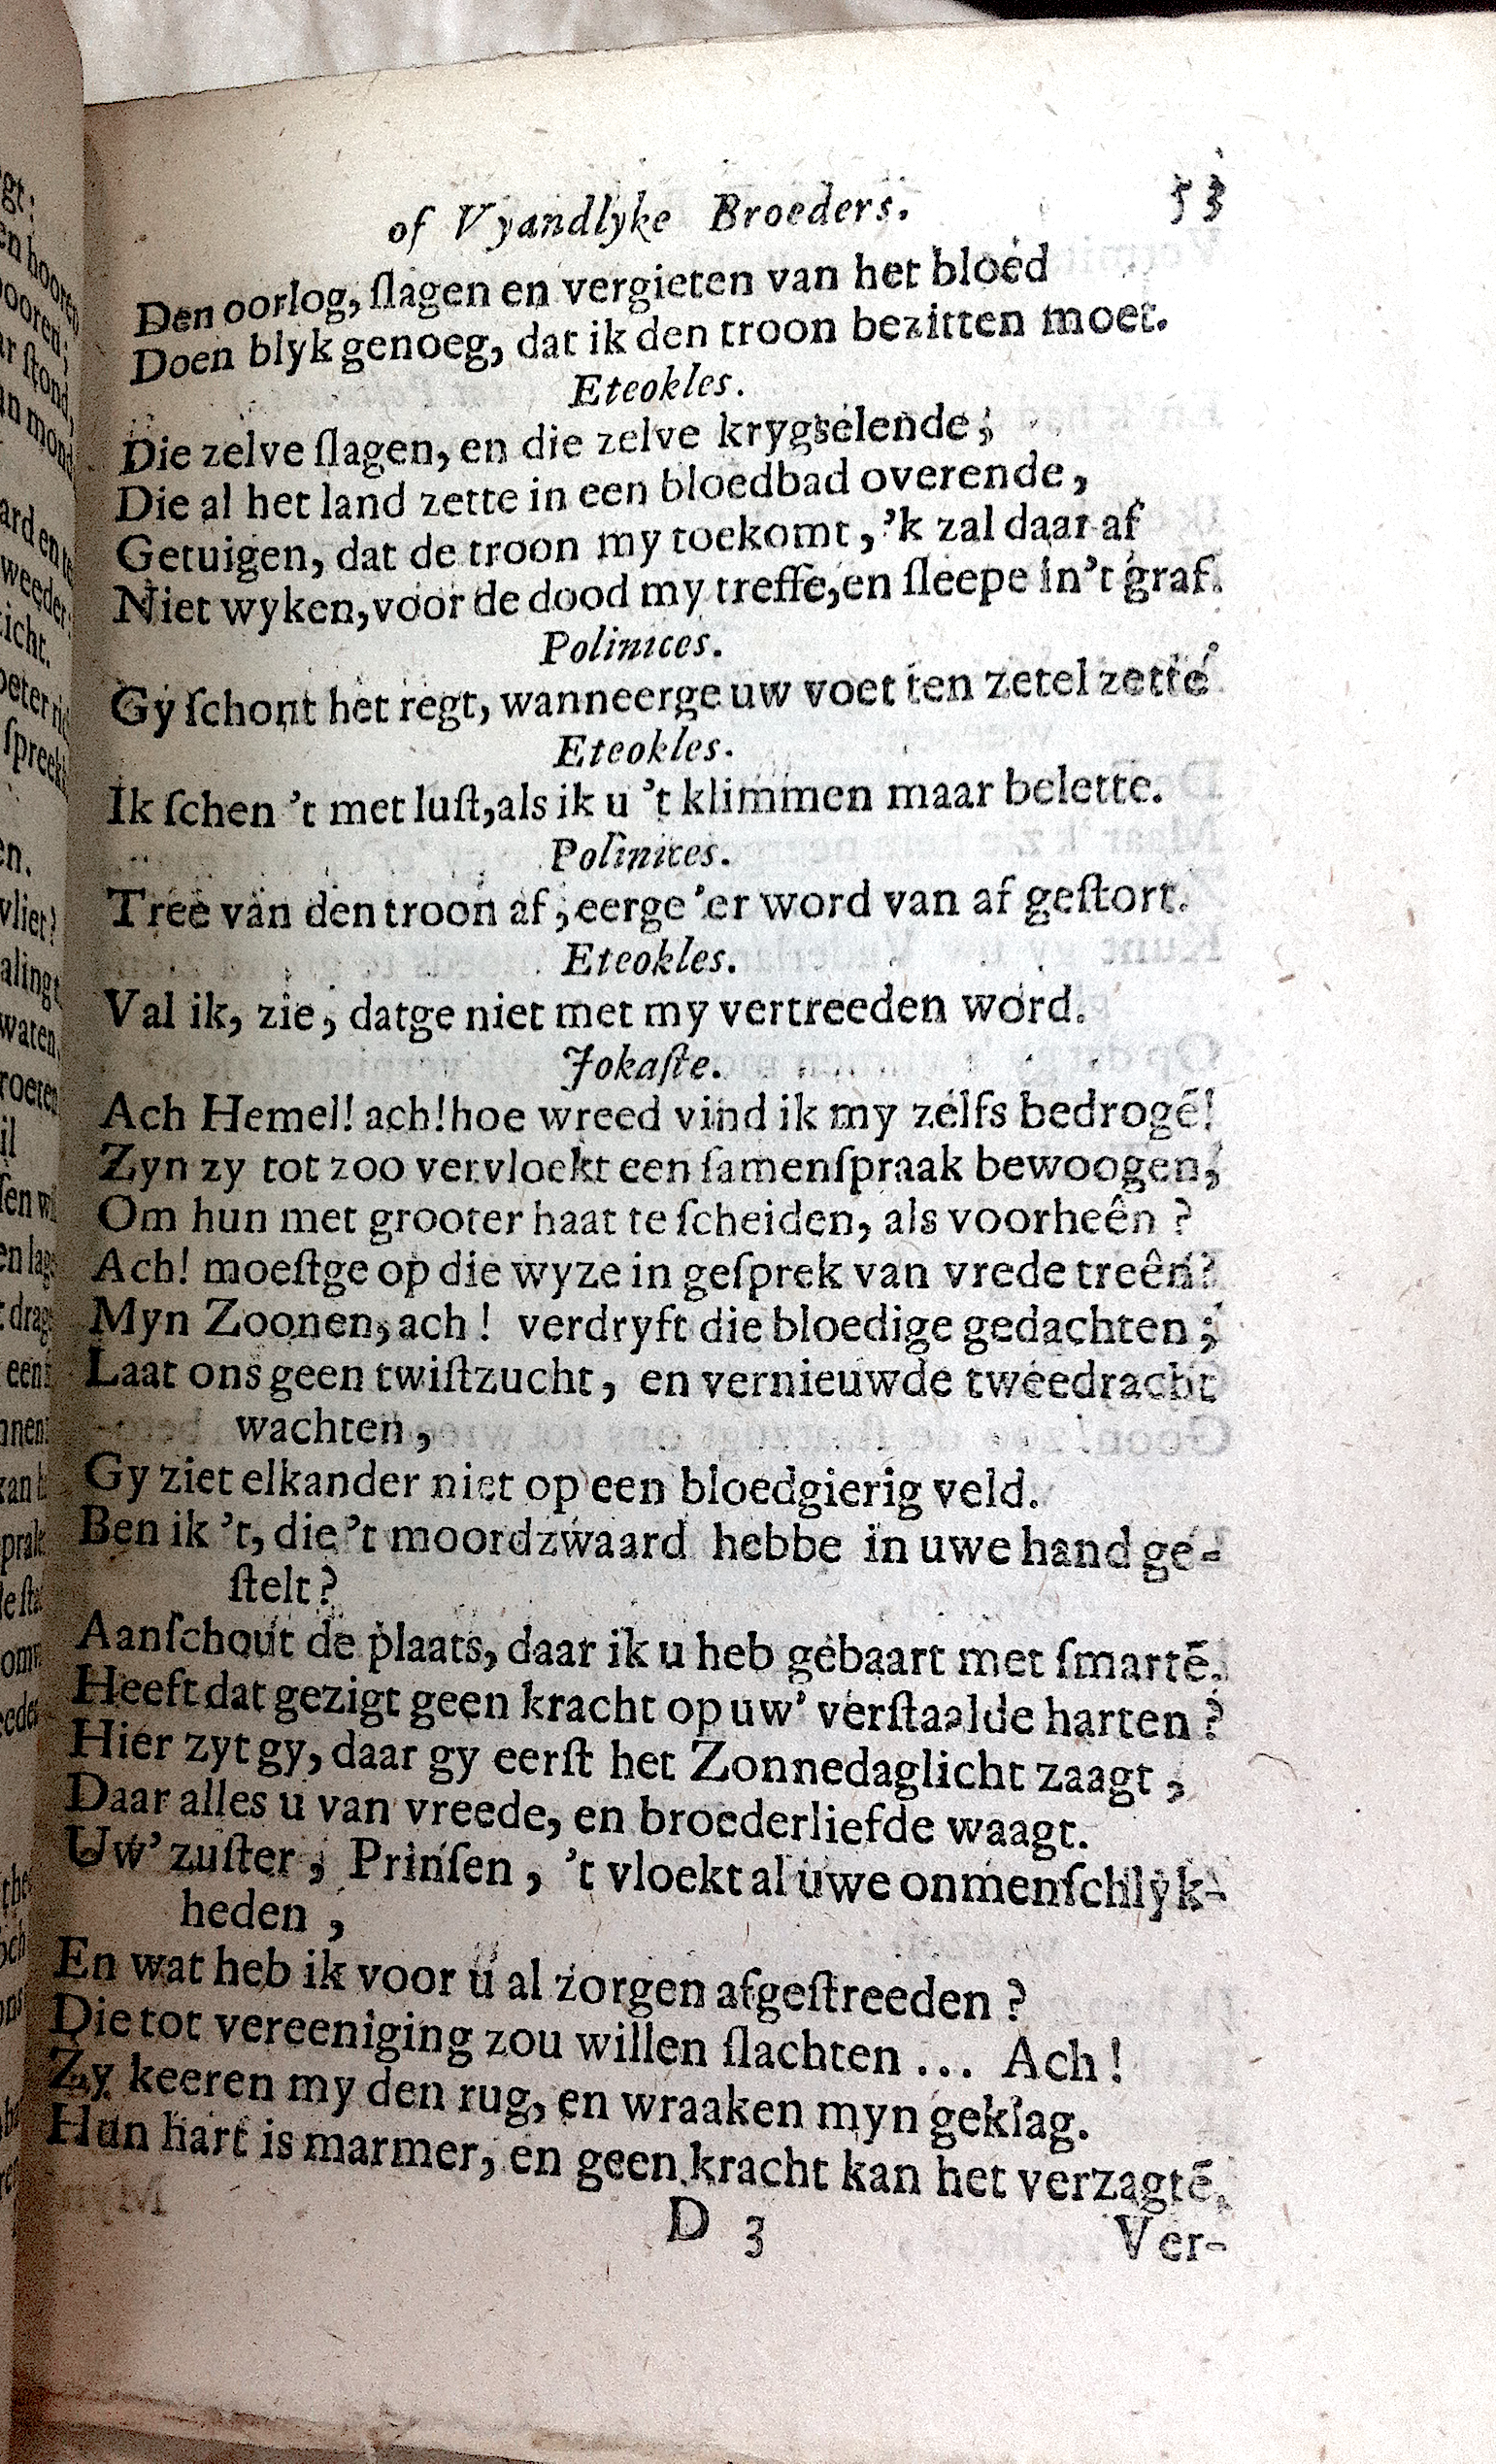 of Vyandlyke Broeders. 53
Den oorlog, ſlagen en vergieten van het bloed
Doen blyk genoeg, dat ik den troon bezitten moet.
Eteokles.
Die zelve ſlagen, en die zelve krygselende,
Die al het land zette in een bloedbad overende,
Getuigen, dat de troon my toekomt, 'k zal daar af
Niet wyken, voor de dood my treffe, en ſleepe in 't graf.
Polinices.
Gy ſchont het regt, wanneerge uw voet ten zetel zette
Eteokles.
Ik ſchen 't met luſt, als ik u 't klimmen maar belette.
Polinices.
Tree van den troon af, eerge 'er word van af geſtort.
Eteokles.
Val ik, zie, datge niet met my vertreeden word.
Jokaſte.
Ach Hemel! ach! hoe wreed vind ik my zelfs bedrogē!
Zyn zy tot zoo vervloekt een ſamenſpraak bewoogen,
Om hun met grooter haat te ſcheiden, als voorheên?
Ach! moeſtge op die wyze in geſprek van vrede treên?
Myn Zoonen, ach! verdryft die bloedige gedachten;
Laat ons geen twiſtzucht, en vernieuwde tweedracht
wachten,
Gy ziet elkander niet op een bloedgierig veld.
Ben ik 't, die 't moordzwaard hebbe in uwe hand ge-
ſtelt?
Aanſchout de plaats, daar ik u heb gebaart met ſmartē.
Heeft dat gezigt geen kracht op uw' verſtaalde harten?
Hier zyt gy, daar gy eerſt het Zonnedaglicht zaagt,
Daar alles u van vreede, en broederliefde waagt.
Uw' zuſter, Prinſen, 't vloekt al uwe onmenſchlyk-
heden,
En wat heb ik voor u al zorgen afgeſtreeden?
Die tot vereeniging zou willen ſlachten ... Ach!
Zy keeren my den rug, en wraaken myn geklag.
Hun hart is marmer, en geen kracht kan het verzagtē,
D 3 Ver-